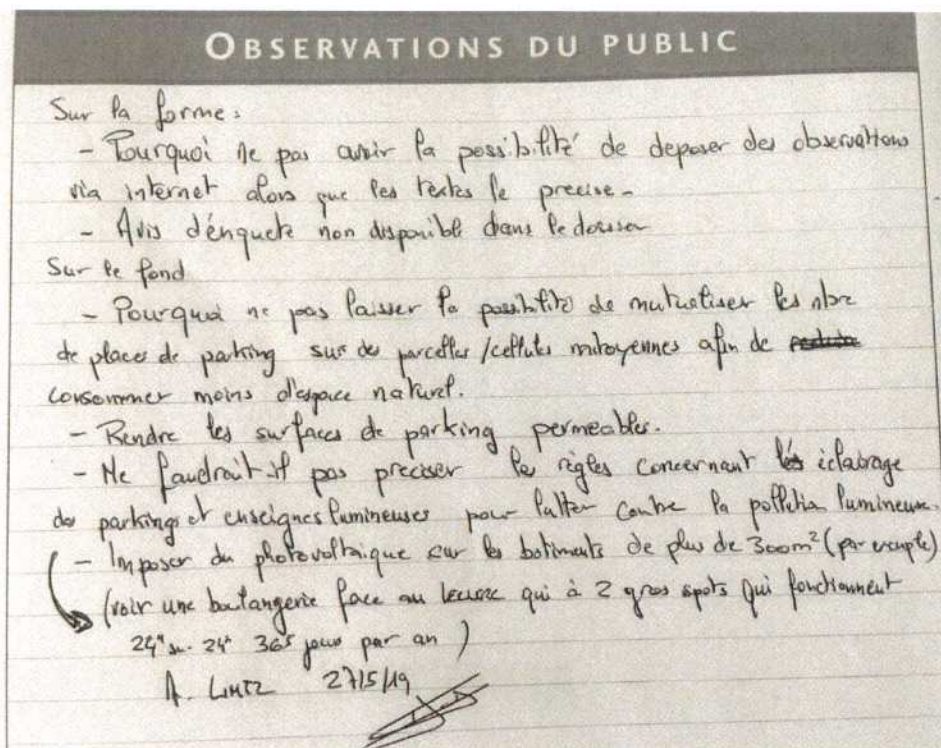 OBSERVATIONS DU PUBLIC
Sur la forme :
- Pourquoi ne pas avoir la possibilité de deposer des observations
via internet alors que les textes le precise -
- Avis d'énquete non disponible dans le dossier
Sur le fond
- Pourquoi ne pas laisser la possibilité de mutualiser les nbre
de places de parking sur des parcelles / cellules mitoyennes afin de
consommer moins d'espace naturel.
- Rendre les surfaces de parking permeables.
- Ne faudrait-il pas preciser les règles concernant les éclairage
des parkings et enseignes lumineuses pour lutter contre la pollution lumineuse.
- Imposer du photovoltaique sur les batiments de plus de 300m² (par exemple)
(voir une boulangerie face au leclerc qui à 2 gros spots qui fonctionnent
24h sur 24h 365 jours par an )
A. 27/5/19